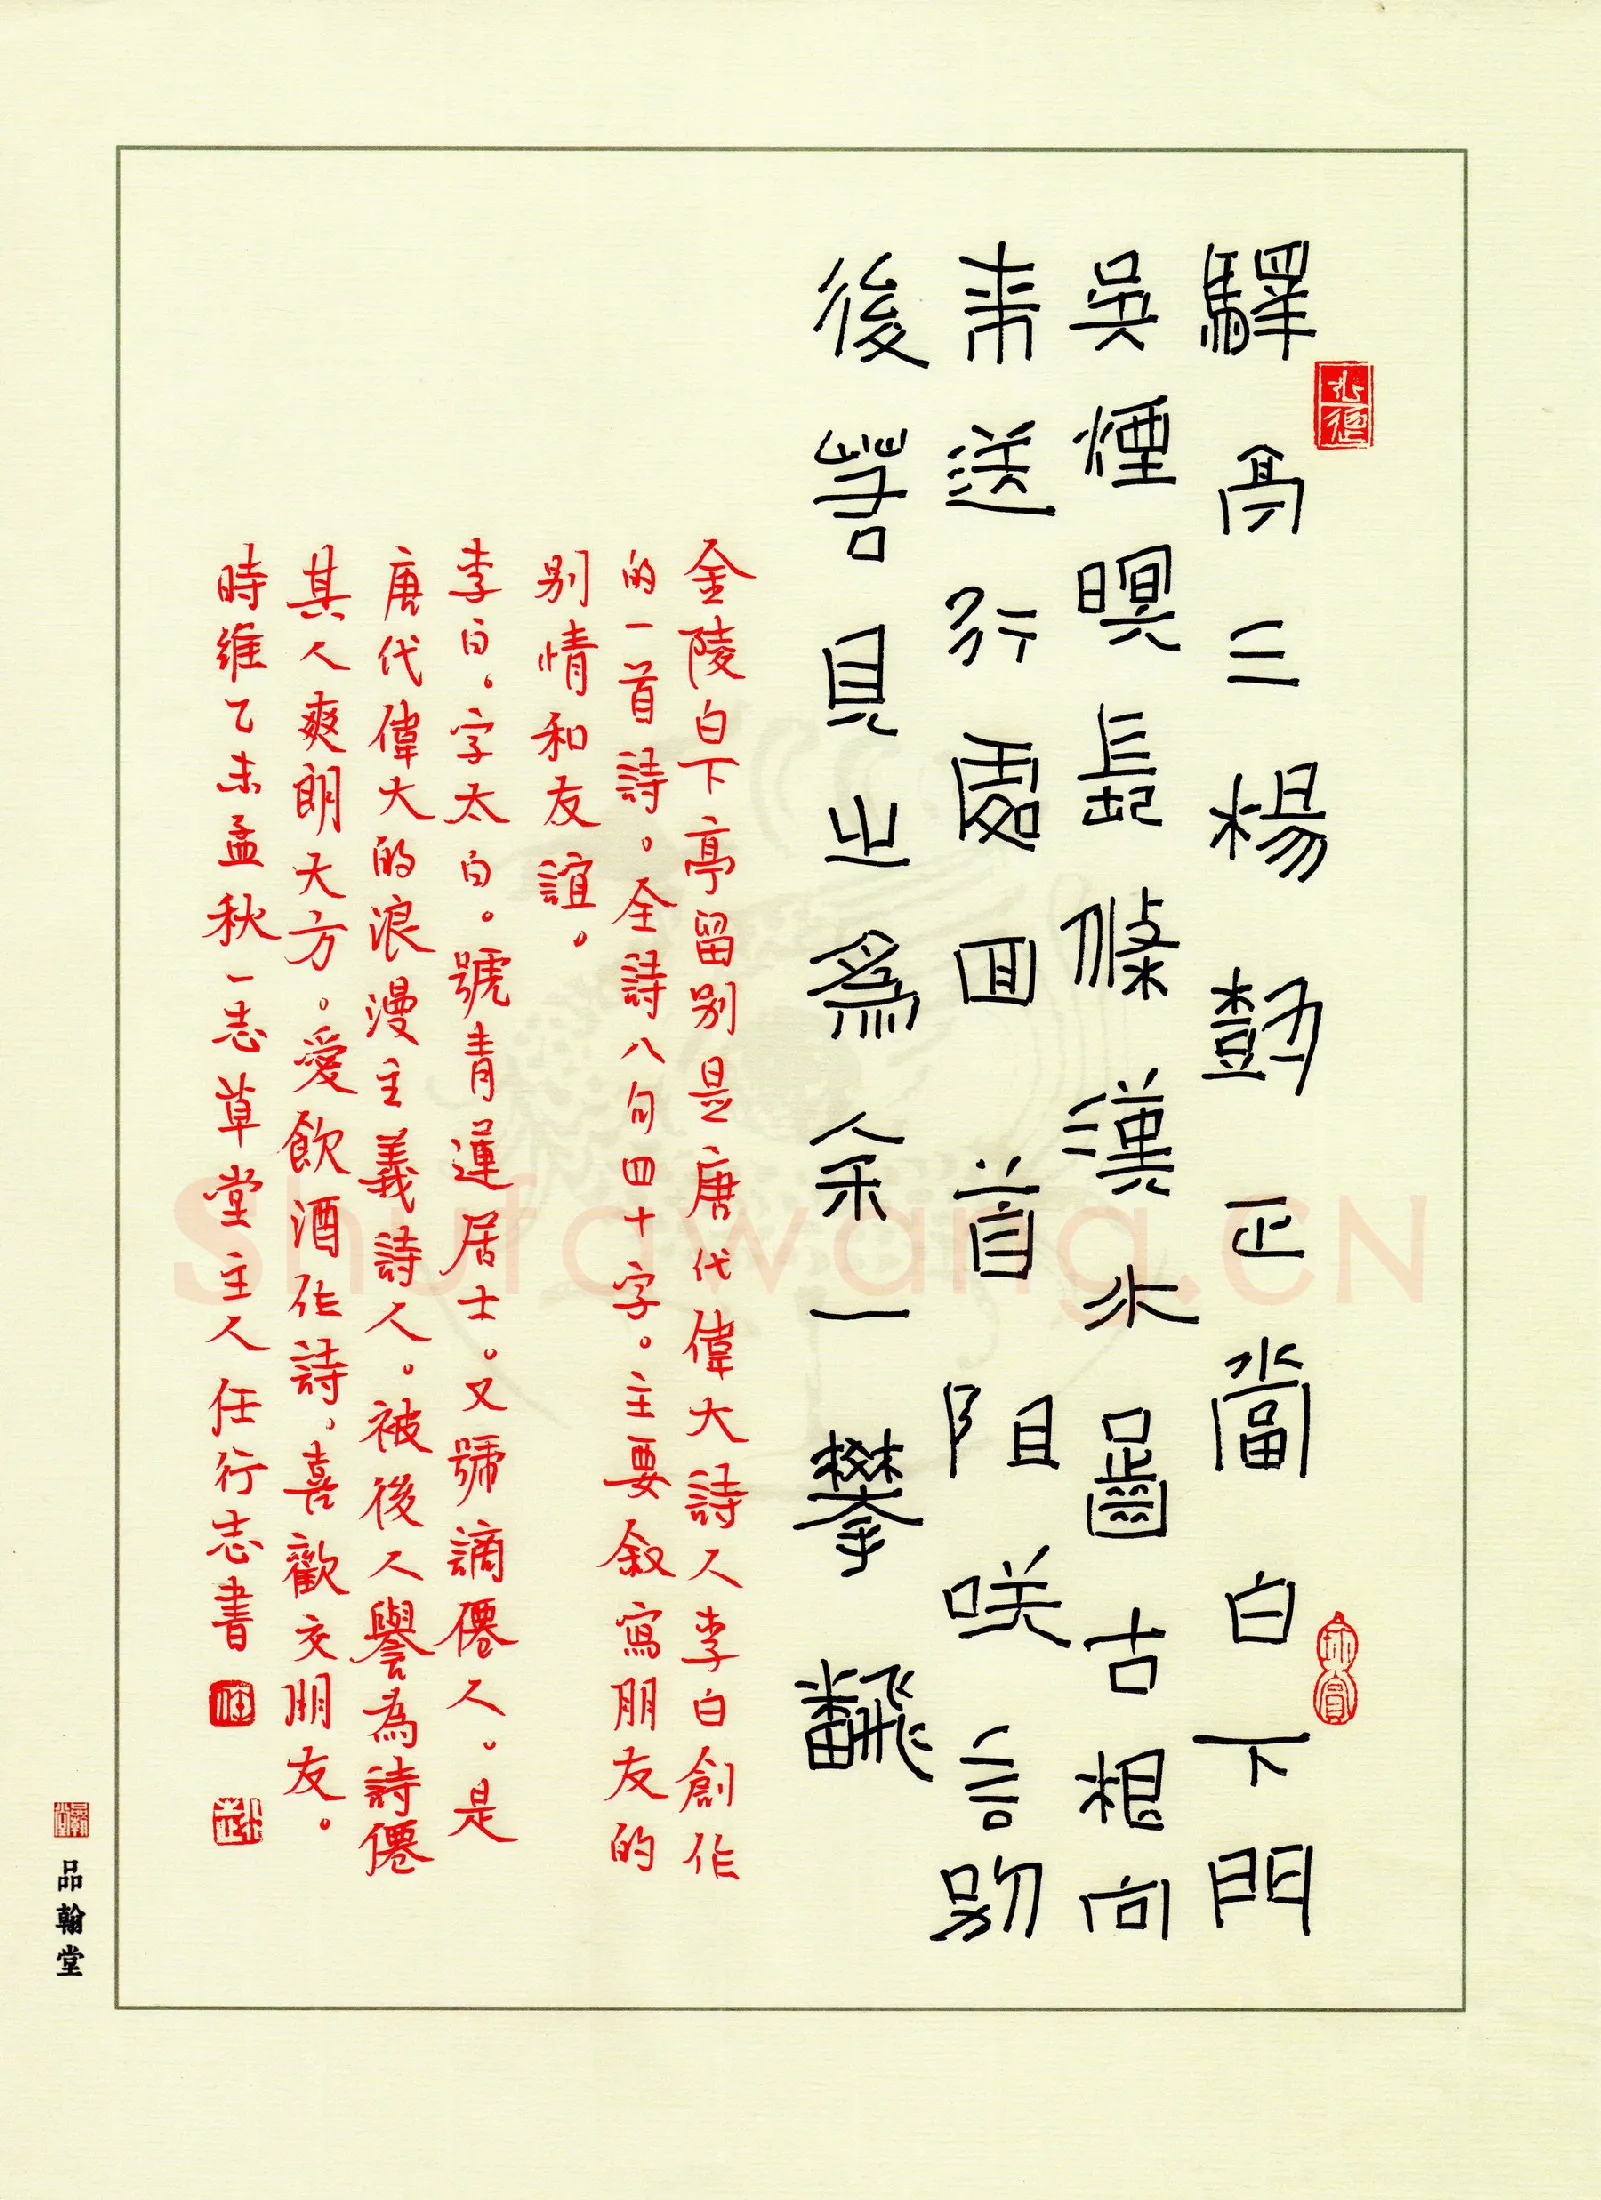 驛亭三楊樹正當白下門
吳煙暝長條漢水齧古根向
來送行處回首阻咲言別
後若見之為余一攀飜
金陵白下亭留別是唐代偉大詩人李白創作
的一首詩。全詩八句四十字。主要叙寫朋友的
別情和友誼。
李白。字太白。號青蓮居士。又號謫僊人。是
唐代偉大的浪漫主義詩人。被後人譽為詩僊
其人爽朗大方。愛飲酒作詩,喜歡交朋友。
時維乙未孟秋一志草堂主人任行志書
品翰堂
Shufawang.CN